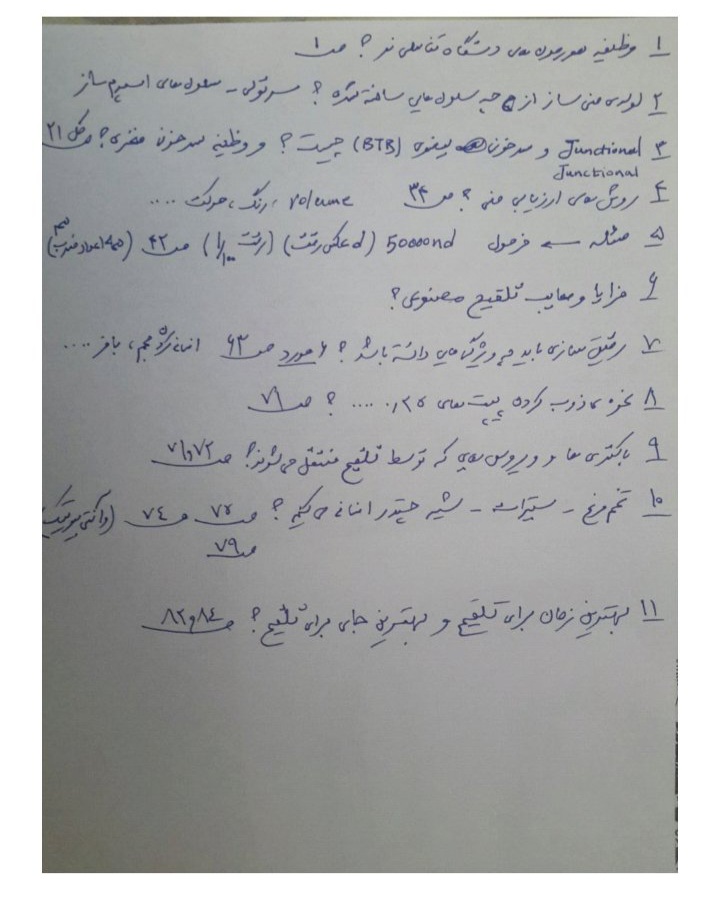 ۱ وظیفه هورمون های دستگاه تناسلی نر؟ ص۱
۲ لوله‌ی منی ساز از چه سلول هایی ساخته شده؟ سرتولی - سلول های اسپرم ساز
۳ Junctional و سد خونی بیضوی (BTB) چیست؟ و وظیفه سد خونی مغزی؟ شکل ۲۱
Junctional
۴ روش های ارزیابی منی؟ ص ۳۴ volume، رنگ، حرکت ....
۵ مسئله ← فرمول 50000nd (d عکس رقت) (رقت ۱/۱۰۰) ص ۴۲
۶ مزایا و معایب تلقیح مصنوعی؟
۷ رقیق سازی باید چه ویژگیهایی داشته باشد؟ ۶ مورد ص ۶۳ حجم، بافر ....
۸ نحوه ذوب کردن پیت های ۰٫۲۵ .... ؟ ص ۷۱
۹ باکتری ها و ویروس هایی که توسط تلقیح منتقل می شوند؟ ص ۷۲ و ۷۱
۱۰ تخم مرغ - سیترات - شیر چقدر اضافه می کنیم؟ ص ۷۵ و ۷۴ (و آنتی بیوتیک)
ص ۷۹
۱۱ بهترین زمان برای تلقیح و بهترین جای برای تلقیح؟ ص ۸۴ و ۸۲